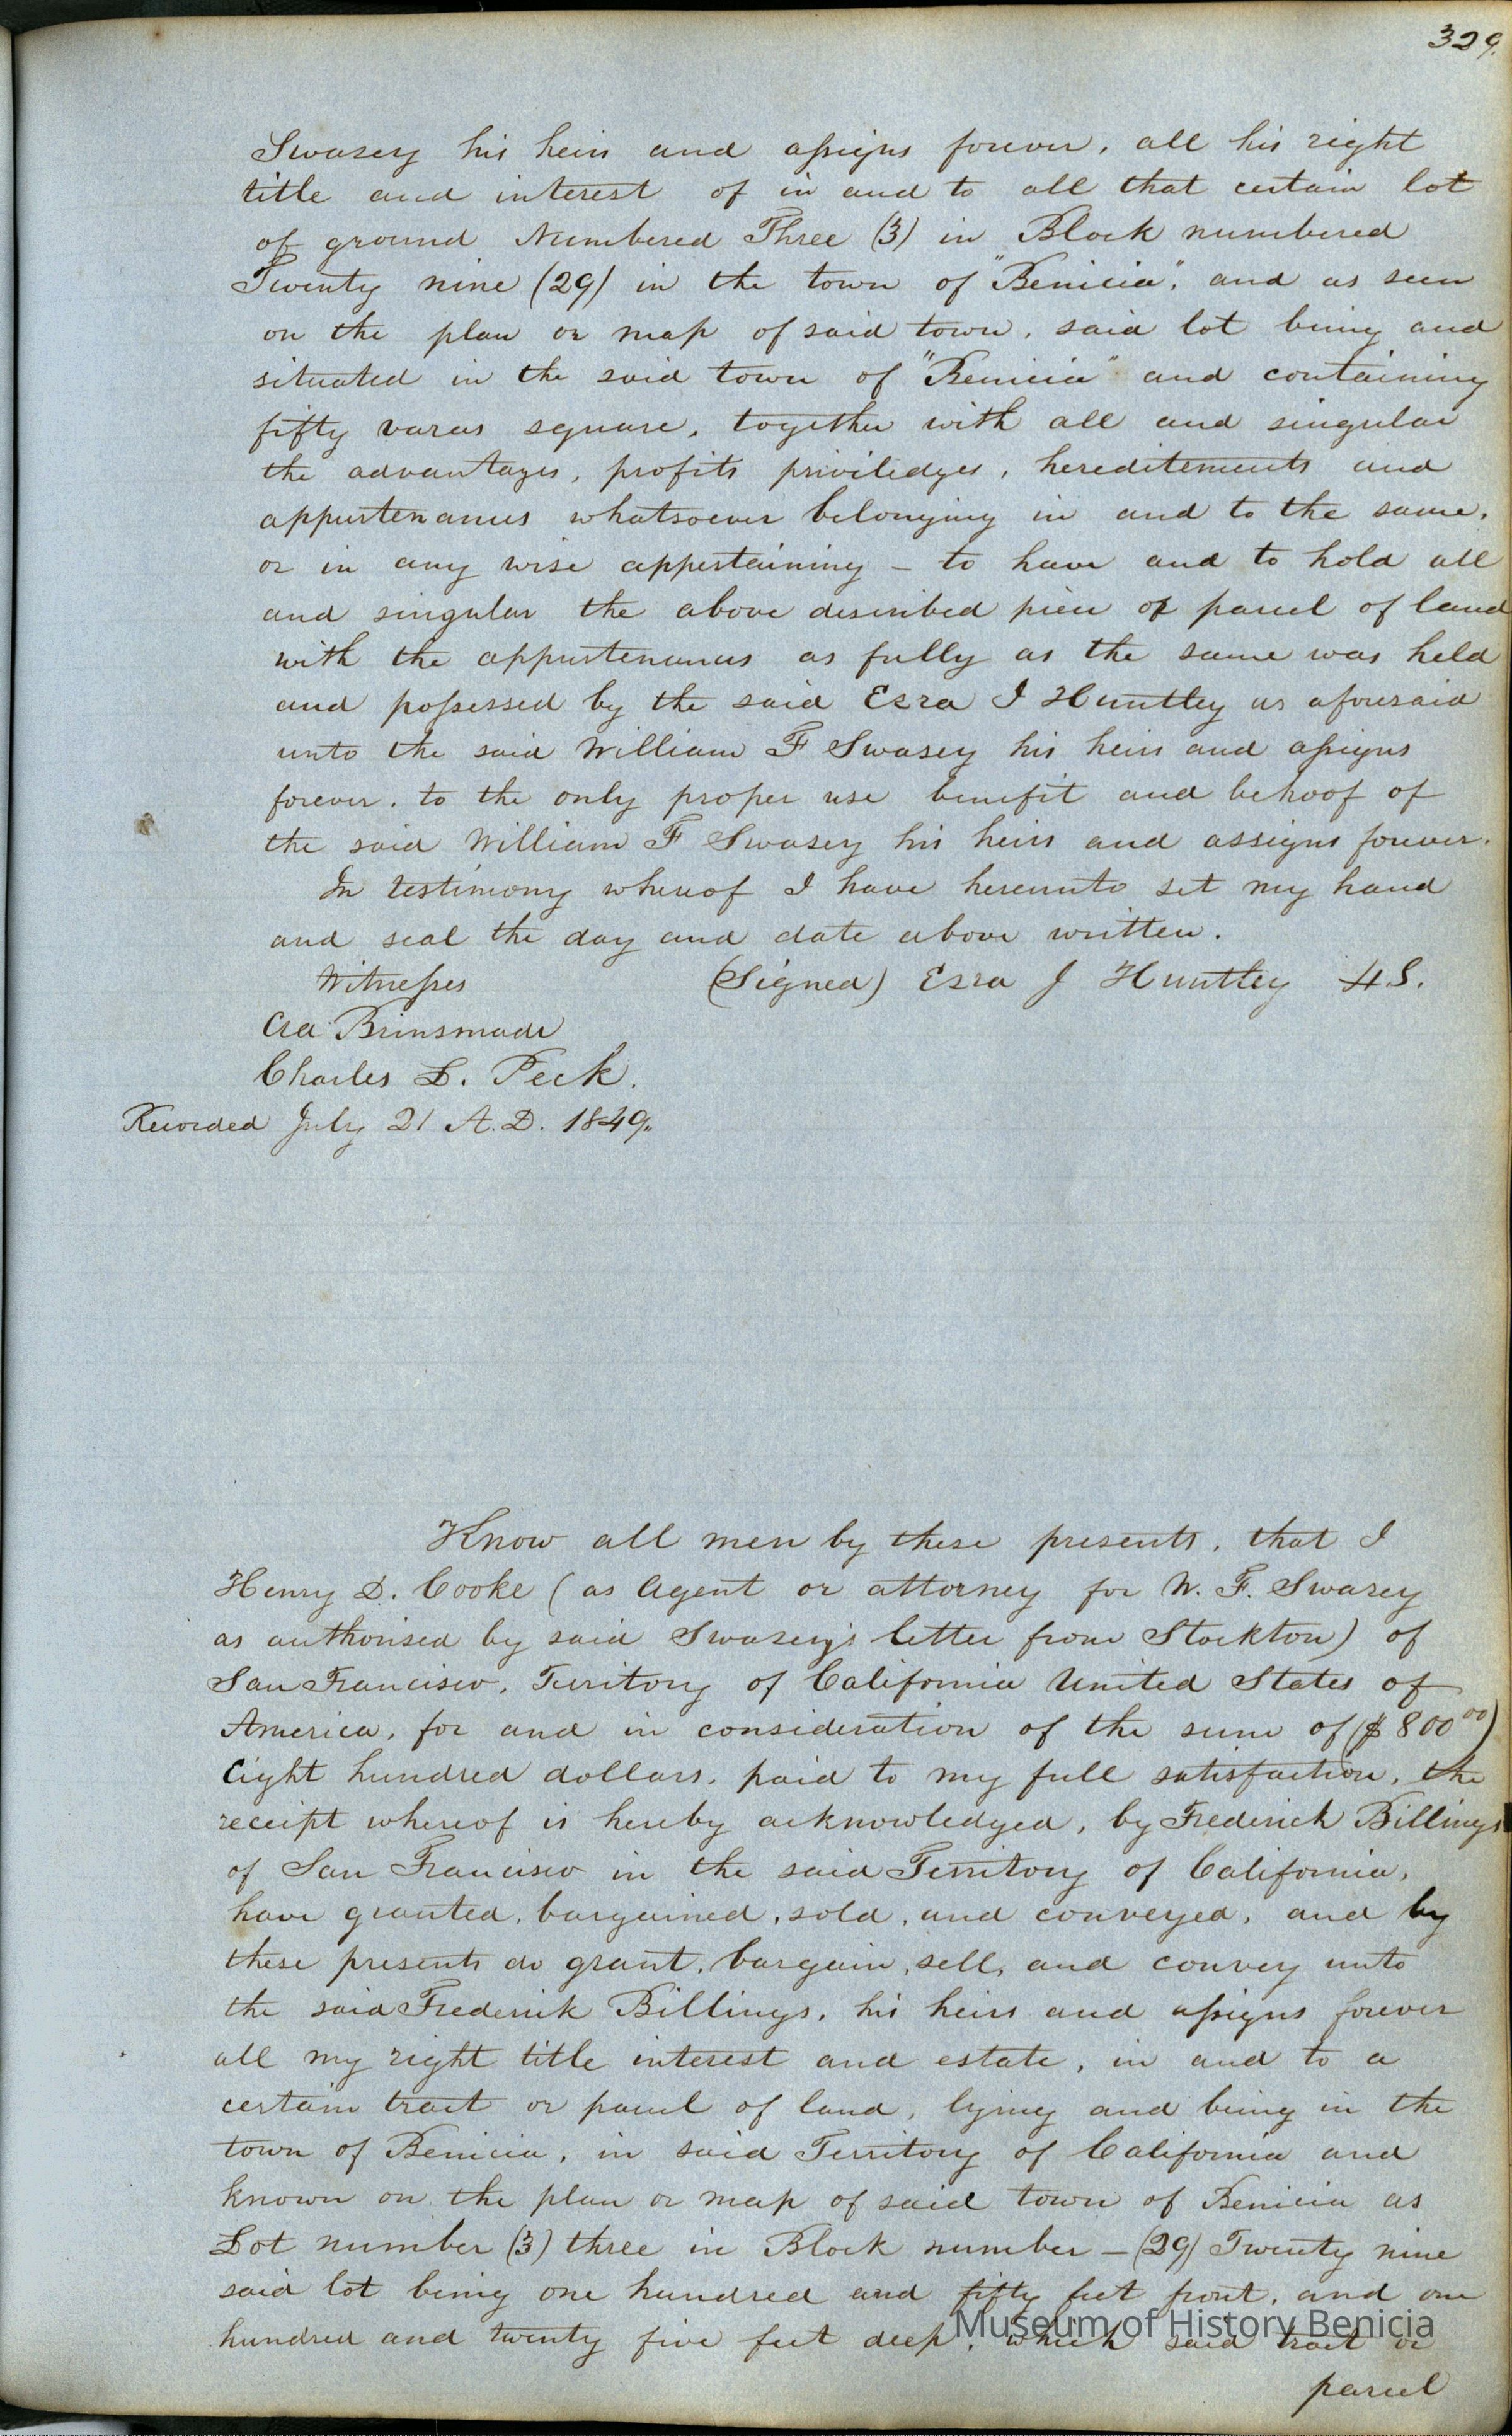 329.
Swasey his heirs and assigns forever, all his right
title and interest of in and to all that certain lot
of ground Numbered Three (3) in Block numbered
Twenty nine (29) in the town of "Benicia", and as seen
on the plan or map of said town, said lot being and
situated in the said town of "Benicia" and containing
fifty varas square, together with all and singular
the advantages, profits priviledges, hereditements and
appurtenances whatsoever belonging in and to the same,
or in any wise appertaining – to have and to hold all
and singular the above described piece or parcel of land
with the appurtenances as fully as the same was held
and possessed by the said Ezra J Huntley as aforesaid
unto the said William F Swasey his heirs and assigns
forever, to the only proper use benefit and behoof of
the said William F Swasey his heirs and assigns forever.
In testimony whereof I have hereunto set my hand
and seal the day and date above written.
Witnesses (Signed) Ezra J Huntley
Brinsmade
Charles L. Peck.
Recorded July 21 A.D. 1849.
Know all men by these presents, that I
Henry D. Cooke (as Agent or attorney for W. F. Swasey
as authorised by said Swasey's letter from Stockton) of
San Francisco, Territory of California United States of
America, for and in consideration of the sum of ($800 00)
Eight hundred dollars, paid to my full satisfaction, the
receipt whereof is hereby acknowledged, by Frederick Billings
of San Francisco in the said Territory of California,
have granted, bargained, sold, and conveyed, and by
these presents do grant, bargain, sell, and convey unto
the said Frederick Billings, his heirs and assigns forever
all my right title interest and estate, in and to a
certain tract or parcel of land, lying and being in the
town of Benicia, in said Territory of California and
known on the plan or map of said town of Benicia as
Lot number (3) three in Block number – (29) Twenty nine
said lot being one hundred and fifty feet front, and one
hundred and twenty five feet deep, which said tract or
parcel
Museum of History Benicia